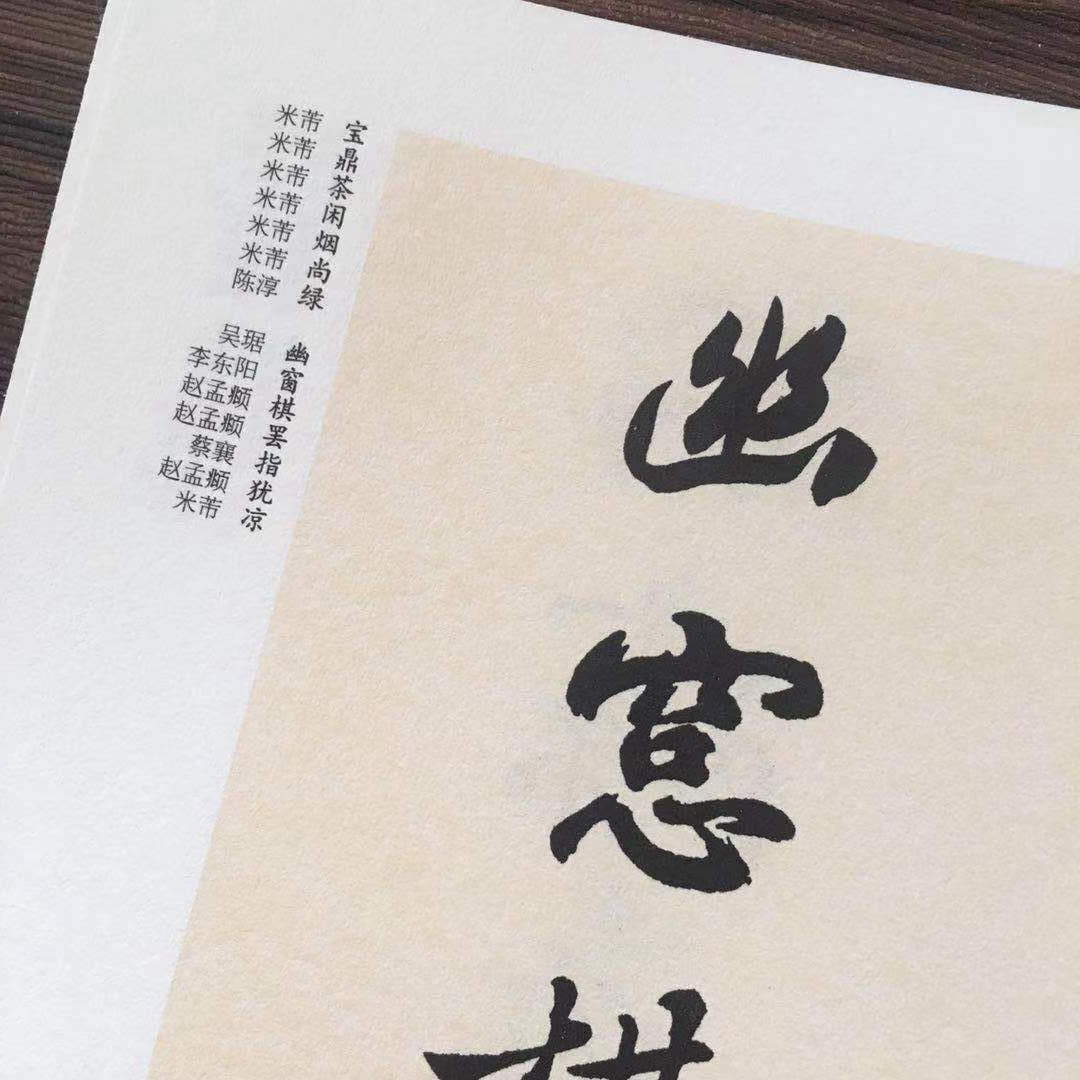 宝鼎茶闲烟尚绿
米芾
米芾
米芾
米芾
米芾
米芾
陈淳
幽窗棋罢指犹凉
吴琚
李东阳
赵孟𫖯
赵孟𫖯
蔡襄
赵孟𫖯
米芾
幽窻棋